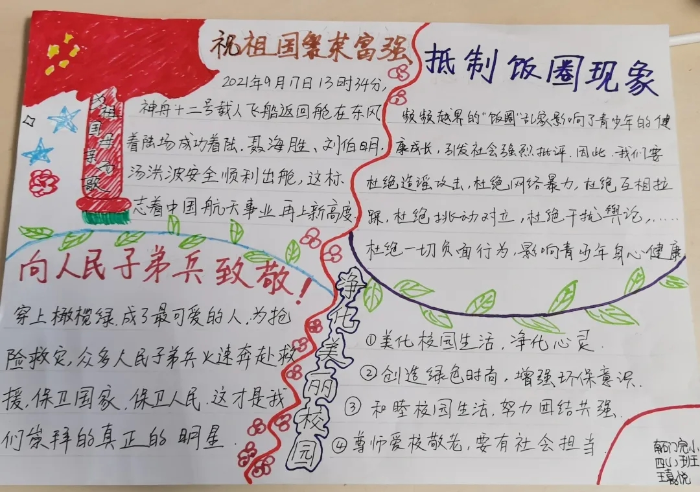 祝祖国繁荣富强
2021年9月17日13时34分,
神舟十二号载人飞船返回舱在东风
着陆场成功着陆.聂海胜、刘伯明、
汤洪波安全顺利出舱,这标
志着中国航天事业再上新高度
为祖国母亲
向人民子弟兵致敬!
穿上橄榄绿,成了最可爱的人,为抢
险救灾,众多人民子弟兵火速奔赴救
援,保卫国家.保卫人民.这才是我
们崇拜的真正的明星.
抵制饭圈现象
频频越界的"饭圈"乱象影响了青少年的健
康成长,引发社会强烈批评.因此.我们要
杜绝造谣攻击,杜绝网络暴力,杜绝互相拉
踩,杜绝挑动对立,杜绝干扰舆论,……
杜绝一切负面行为,影响青少年身心健康
净化美丽校园
①美化校园生活,净化心灵.
②创造绿色时尚,增强环保意识.
③ 和睦校园生活,努力团结共强.
④尊师爱校敬老,要有社会担当.